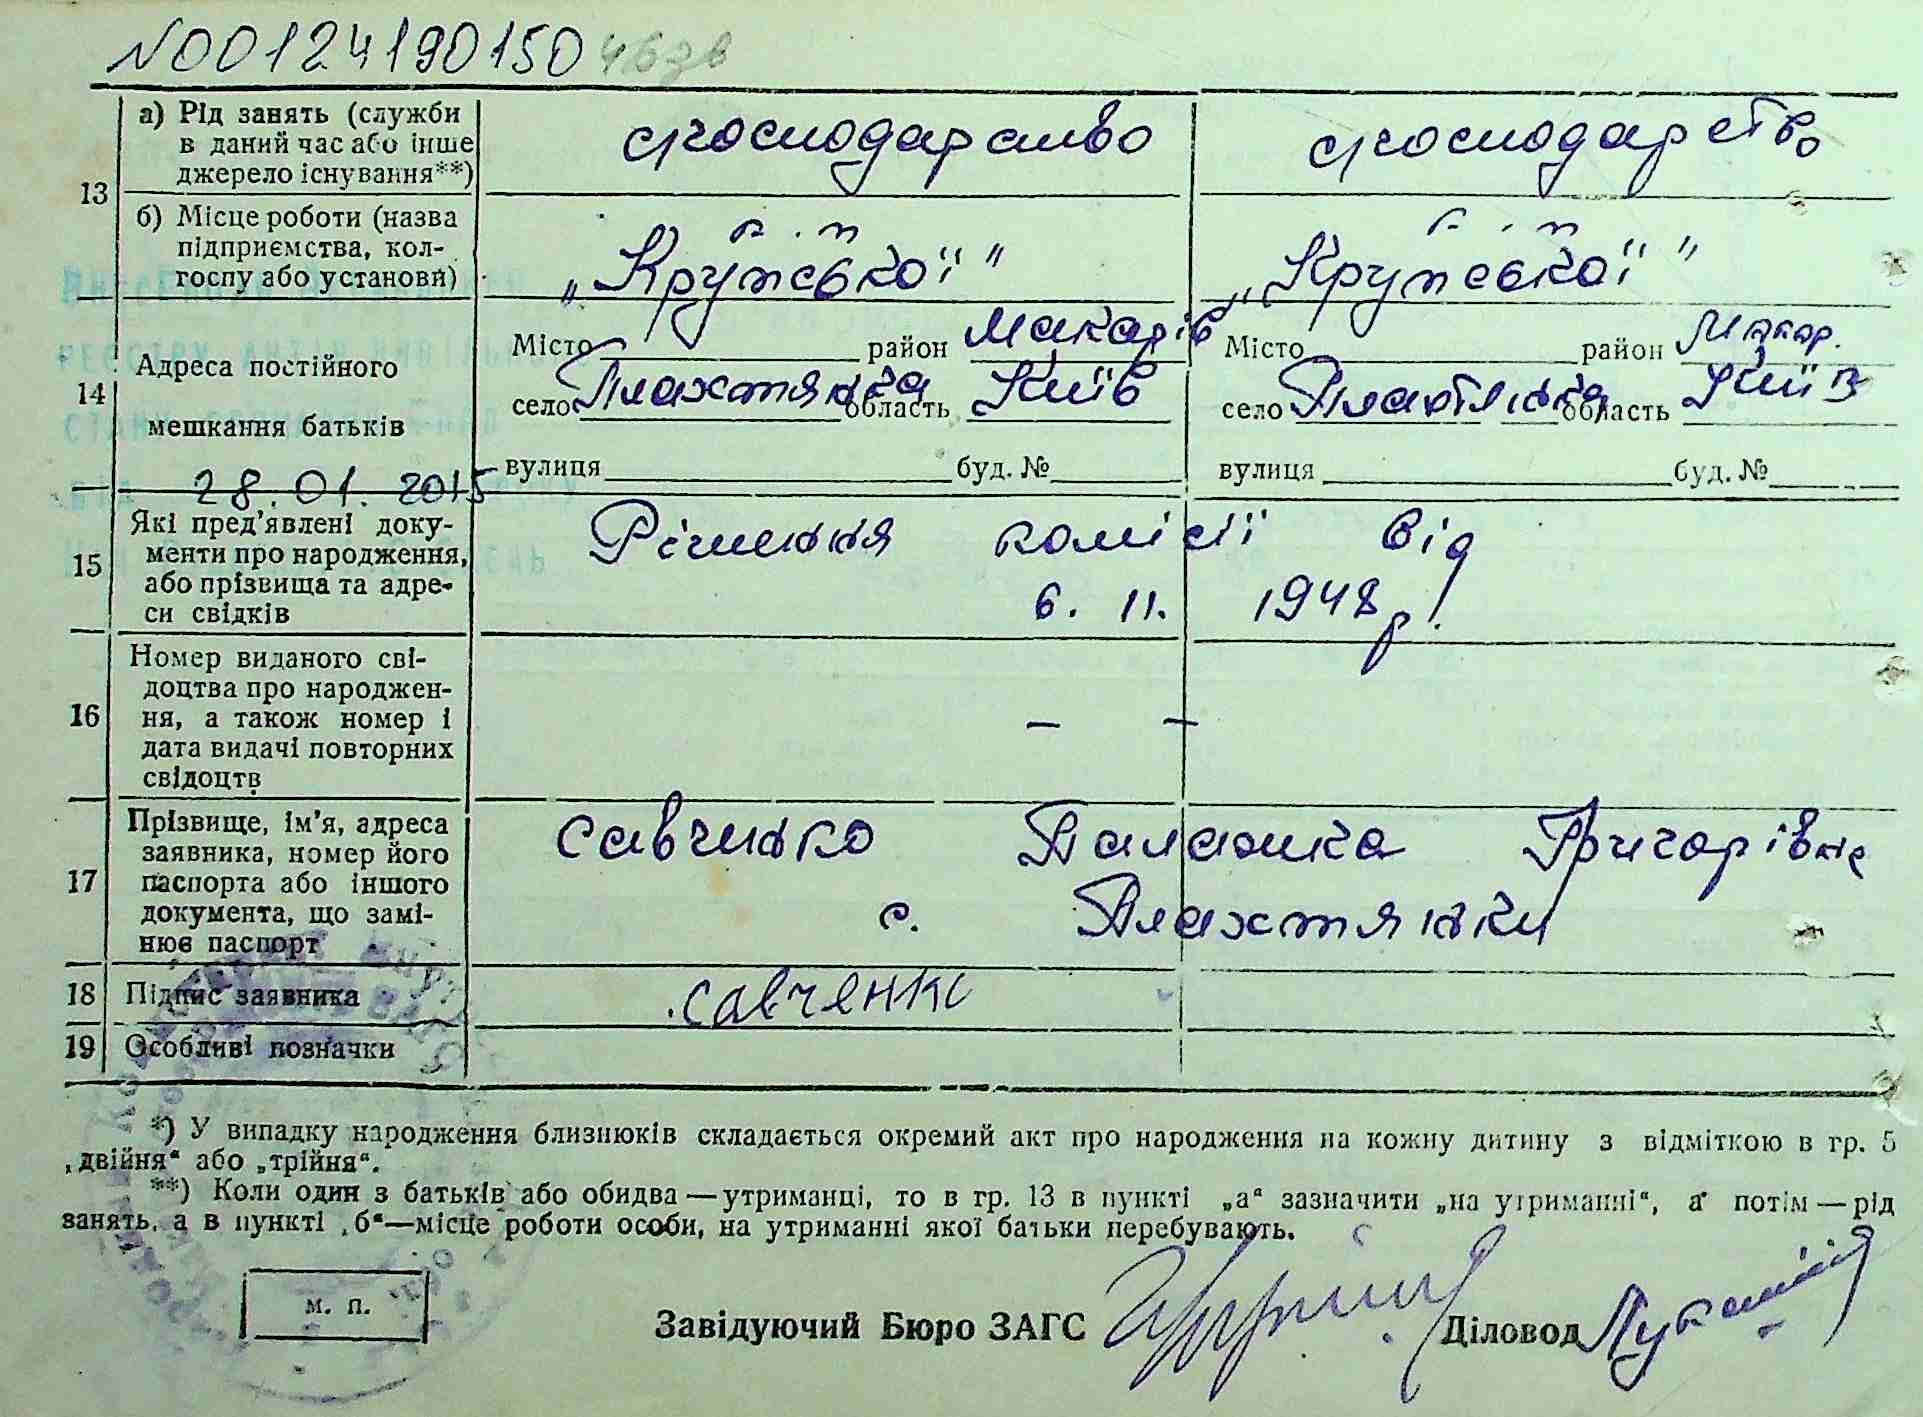 №00124190150 46зв
а) Рід занять (служби в даний час або інше джерело існування**)
с/господарство с/господарство
13
б) Місце роботи (назва підприємства, колгоспу або установи)
к. і. п к. і. п
„Крупської" „Крупської"
14
Адреса постійного мешкання батьків
Місто район Макарів Місто район Макар.
село Плахтянка область Київ село Плахтянка область Київ
вулиця буд. № вулиця буд. №
28.01.2015
15
Які пред'явлені документи про народження, або прізвища та адреси свідків
Рішення комісії від
6. 11. 1948 р.
16
Номер виданого свідоцтва про народження, а також номер і дата видачі повторних свідоцтв
— —
17
Прізвище, ім'я, адреса заявника, номер його паспорта або іншого документа, що замінює паспорт
Савченко Палажка Григорівна
с. Плахтянки
18 Підпис заявника Савченко
19 Особливі позначки
*) У випадку народження близнюків складається окремий акт про народження на кожну дитину з відміткою в гр. 5
„двійня" або „трійня".
**) Коли один з батьків або обидва — утриманці, то в гр. 13 в пункті „а" зазначити „на утриманні", а потім — рід
занять, а в пункті „б"—місце роботи особи, на утриманні якої батьки перебувають.
м. п.
Завідуючий Бюро ЗАГС Діловод